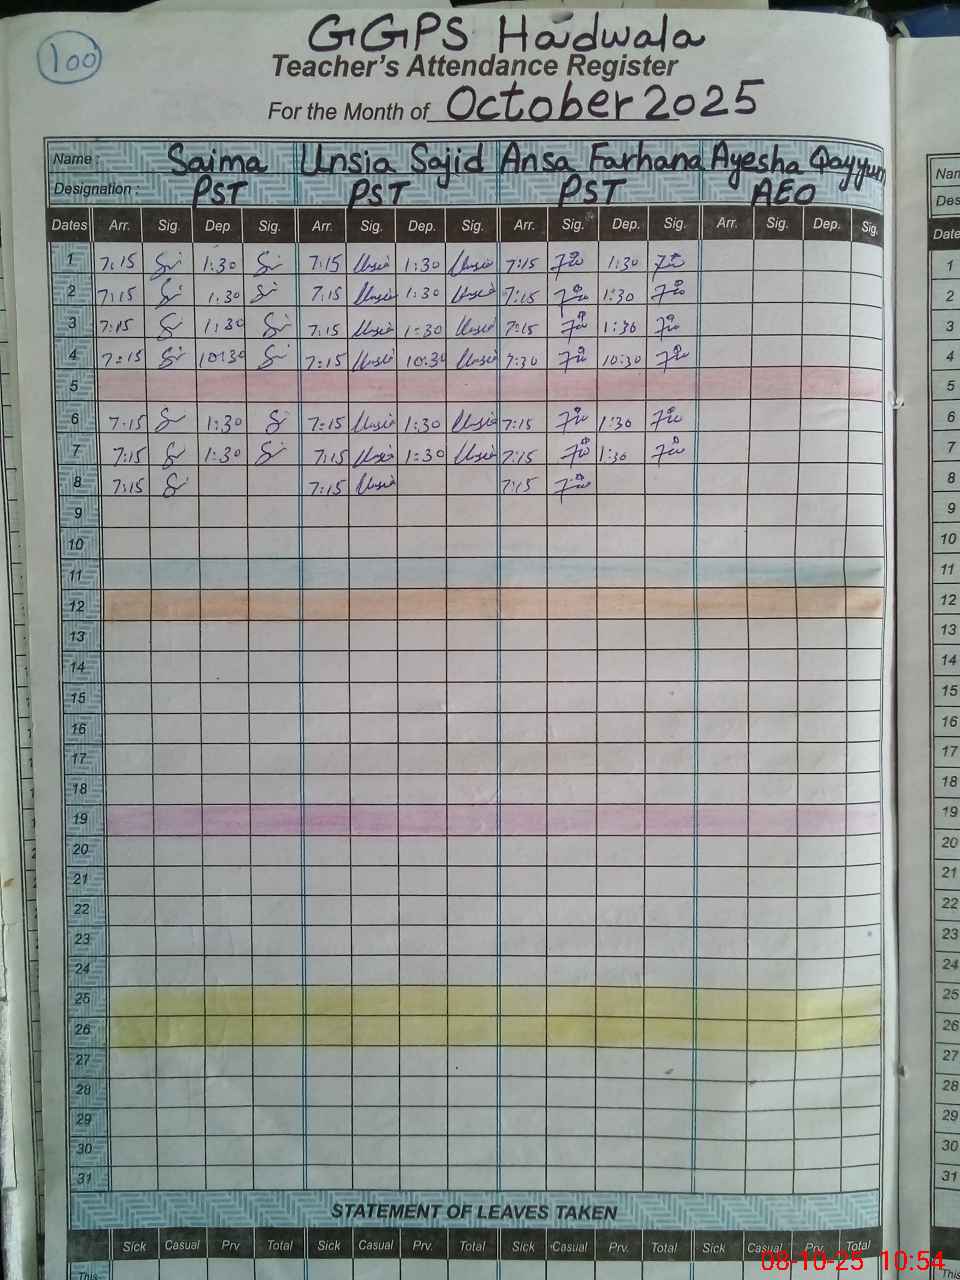 100
GGPS Haidwala
Teacher's Attendance Register
For the Month of October 2025
Name: Saima Unsia Sajid Ansa Farhana Ayesha Qayyum
Designation: PST PST PST AEO
Dates Arr. Sig. Dep. Sig. Arr. Sig. Dep. Sig. Arr. Sig. Dep. Sig. Arr. Sig. Dep. Sig.
1 7:15 1:30 7:15 Unsia 1:30 Unsia 7:15 1:30
2 7:15 1:30 7:15 Unsia 1:30 Unsia 7:15 1:30
3 7:15 1:30 7:15 Unsia 1:30 Unsia 7:15 1:30
4 7:15 10:30 7:15 Unsia 10:30 Unsia 7:30 10:30
5
6 7:15 1:30 7:15 Unsia 1:30 Unsia 7:15 1:30
7 7:15 1:30 7:15 Unsia 1:30 Unsia 7:15 1:30
8 7:15 7:15 Unsia 7:15
9
10
11
12
13
14
15
16
17
18
19
20
21
22
23
24
25
26
27
28
29
30
31
STATEMENT OF LEAVES TAKEN
Sick Casual Prv Total Sick Casual Prv. Total Sick Casual Prv. Total Sick Casual Prv. Total
This
08-10-25 10:54
Nam
Des
Date
1
2
3
4
5
6
7
8
9
10
11
12
13
14
15
16
17
18
19
20
21
22
23
24
25
26
27
28
29
30
31